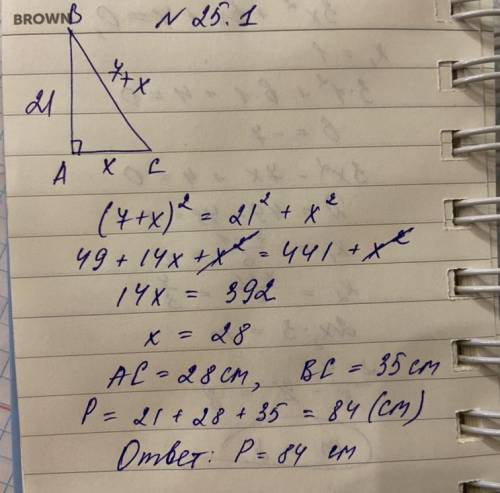 BROWN
N 25.1
B
21
7+x
A
x
C
(7+x)² = 21² + x²
49 + 14x + x² = 441 + x²
14x = 392
x = 28
AC = 28 см, BC = 35 см
P = 21 + 28 + 35 = 84 (см)
Ответ: P = 84 см